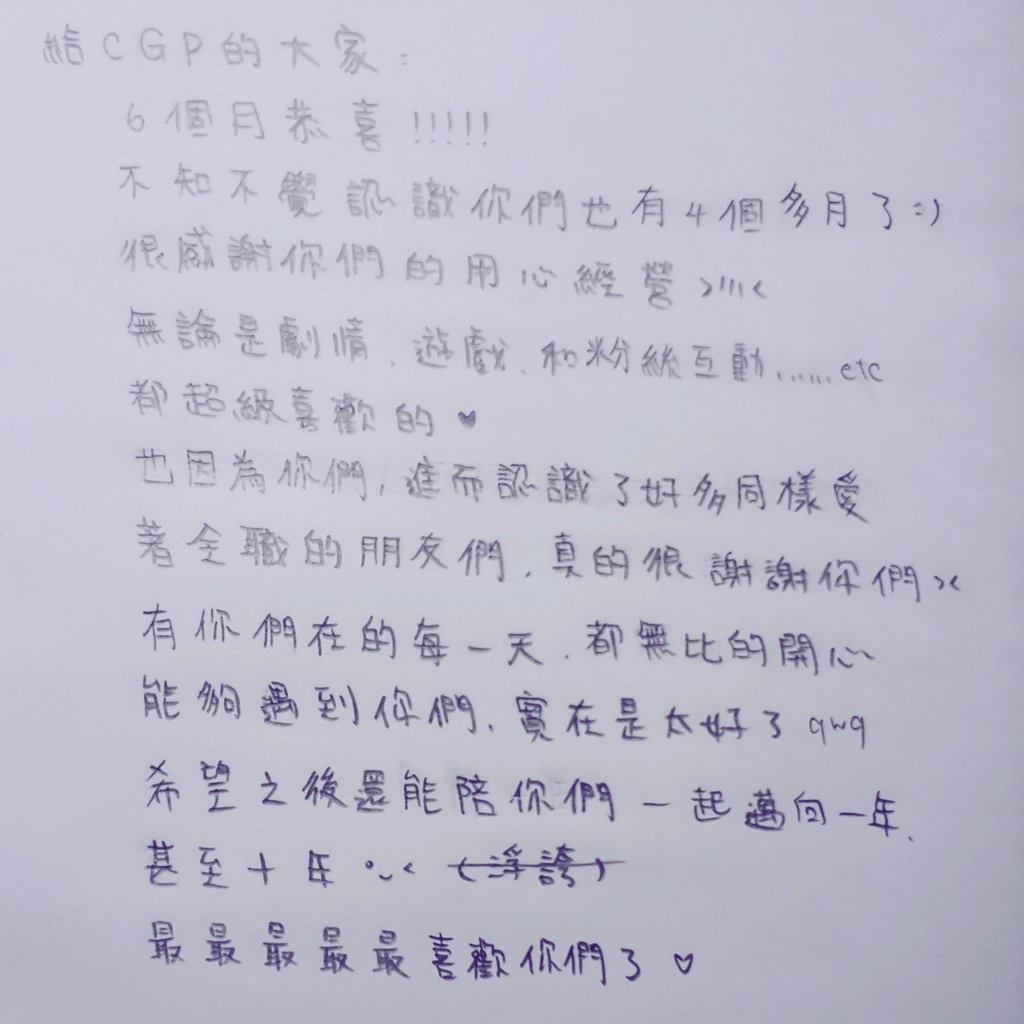 給CGP的大家:
6個月恭喜!!!!!
不知不覺認識你們也有4個多月了=)
很感謝你們的用心經營>///<
無論是劇情、遊戲、和粉絲互動......etc
都超級喜歡的♥
也因為你們,進而認識了好多同樣愛
著全職的朋友們,真的很謝謝你們><
有你們在的每一天,都無比的開心~
能夠遇到你們,實在是太好了qwq
希望之後還能陪你們一起邁向一年、
甚至十年•~< (浮誇)
最最最最最喜歡你們了♡